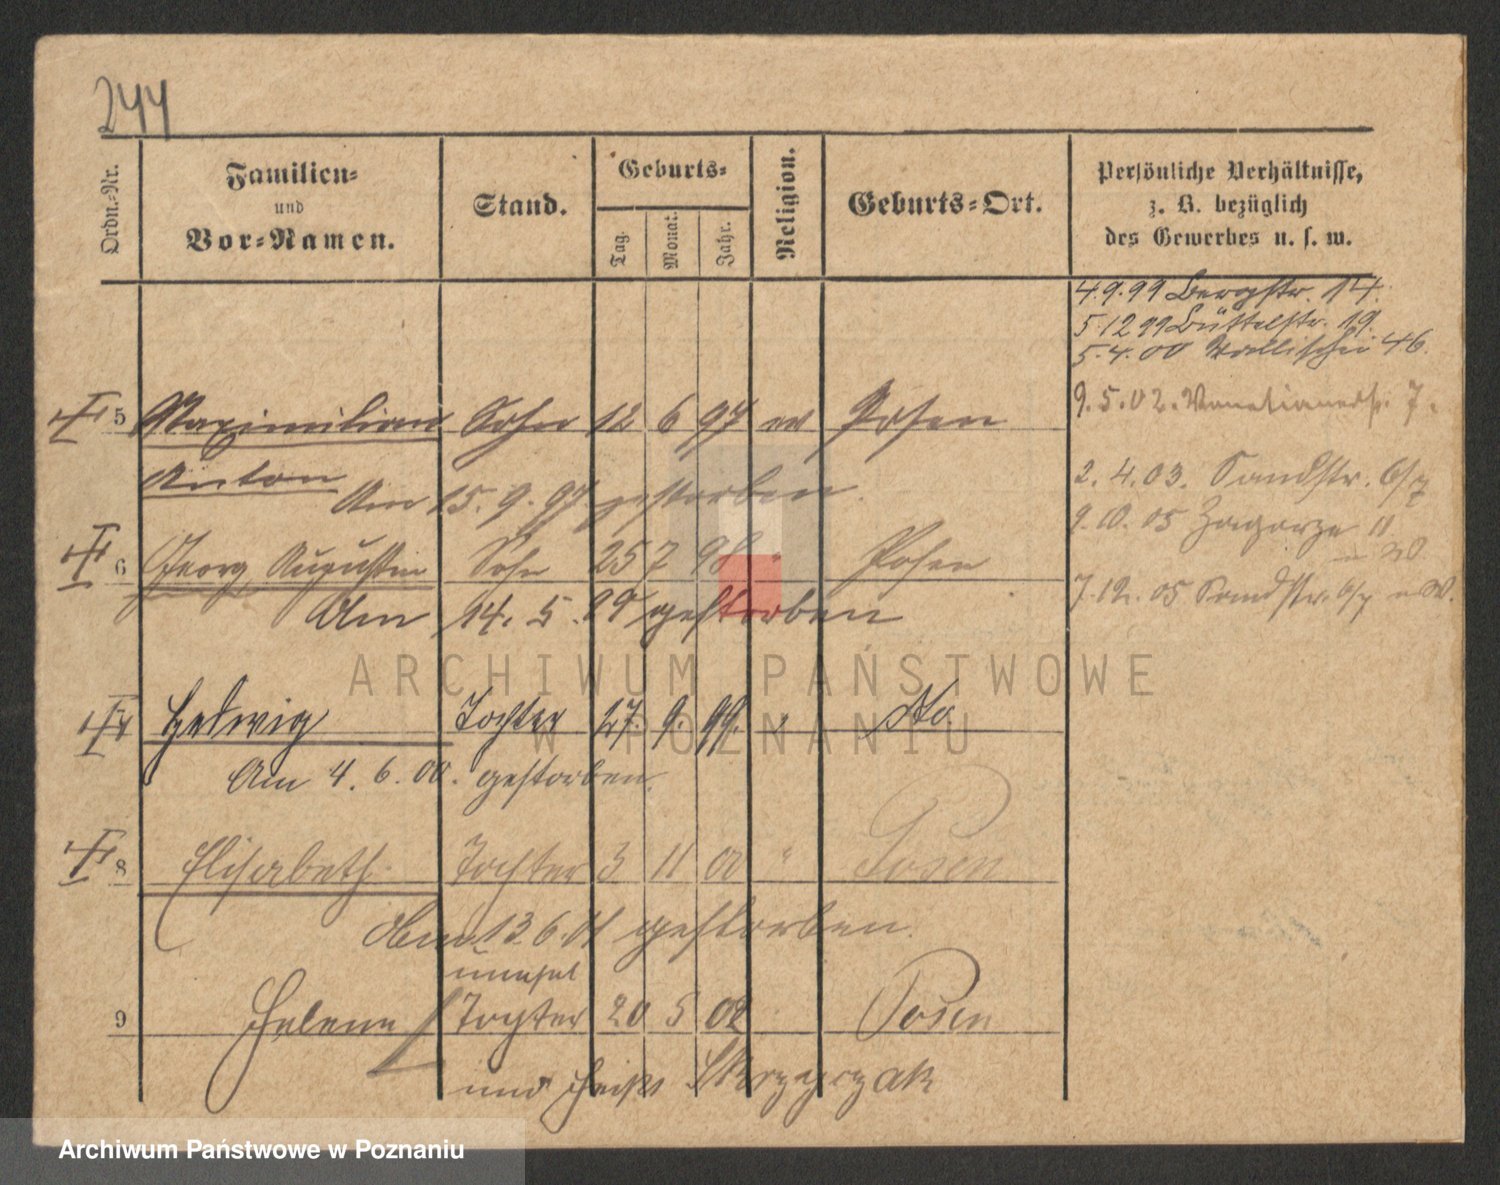 244
Ordn.-Nr.
Familien-
und
Vor-Namen.
Stand.
Geburts-
Tag.
Monat.
Jahr.
Religion.
Geburts-Ort.
Persönliche Verhältnisse,
z. B. bezüglich
des Gewerbes u. s. w.
4.9.99 Bergstr. 14.
5.12 99 Büttelstr. 19.
5.4.00 Wallischei 46.
9.5.02. Venetianerstr. 7.
5 Maximilian Sohn 12 6 97 Posen
Anton
Am 15.9.97 gestorben.
2.4.03. Sandstr.
9.10.05 Zagorze 11
6 Georg Augustin Sohn 25 7 98 Posen
7.12.05 Sandstr.
Am 14.5.99 gestorben
ARCHIWUM PAŃSTWOWE
W POZNANIU
7 Hedwig Tochter 27. 9. 99. " do
Am 4.6.00. gestorben.
8 Elisabeth Tochter 3 11 00 " Posen
Am 13.6.01 gestorben.
unehel
9 Helene Tochter 20 5 02 Posen
und heißt Skrzypczak
Archiwum Państwowe w Poznaniu